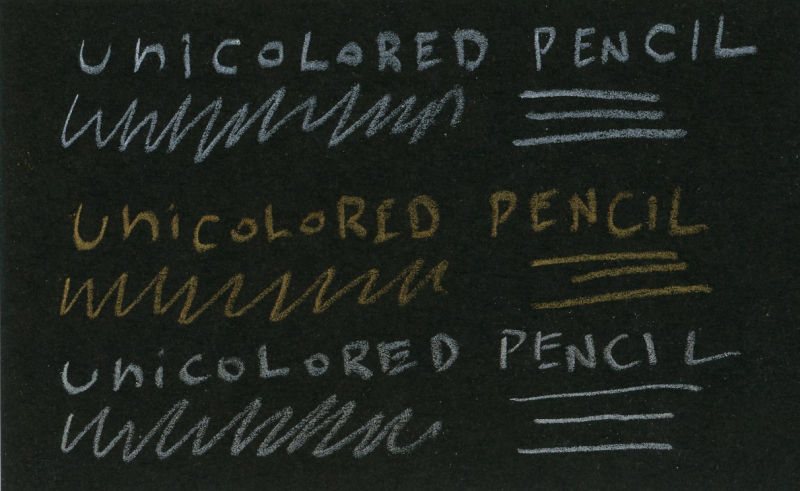 UniCOLORED PENCIL
UniCOLORED PENCIL
UniCOLORED PENCIL